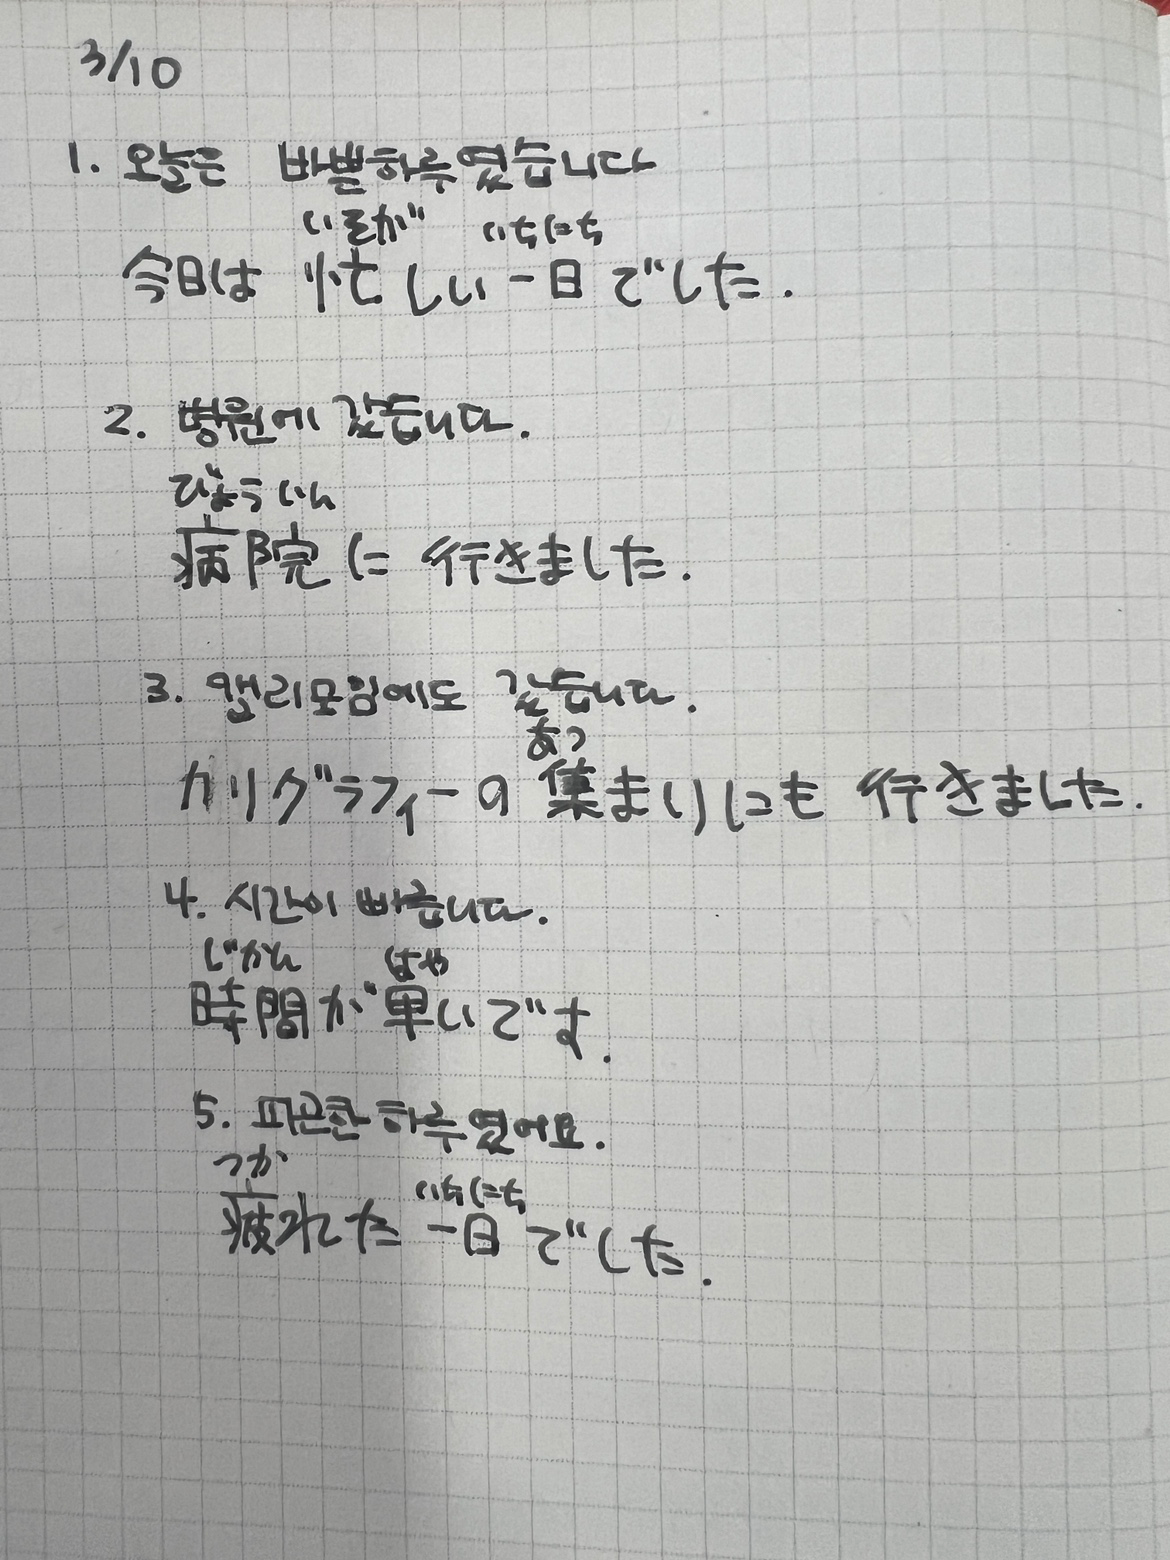 3/10
1. 오늘은 바쁠하루였습니다
いそが いちにち
今日は 忙しい一日でした.
2. 병원에 갔습니다.
びょういん
病院に 行きました.
3. 캘리모임에도 갔습니다.
あつ
カリグラフィーの 集まりにも 行きました.
4. 시간이 빠릅니다.
じかん はや
時間が早いです.
5. 피곤한 하루였어요.
つか いちにち
疲れた 一日でした.